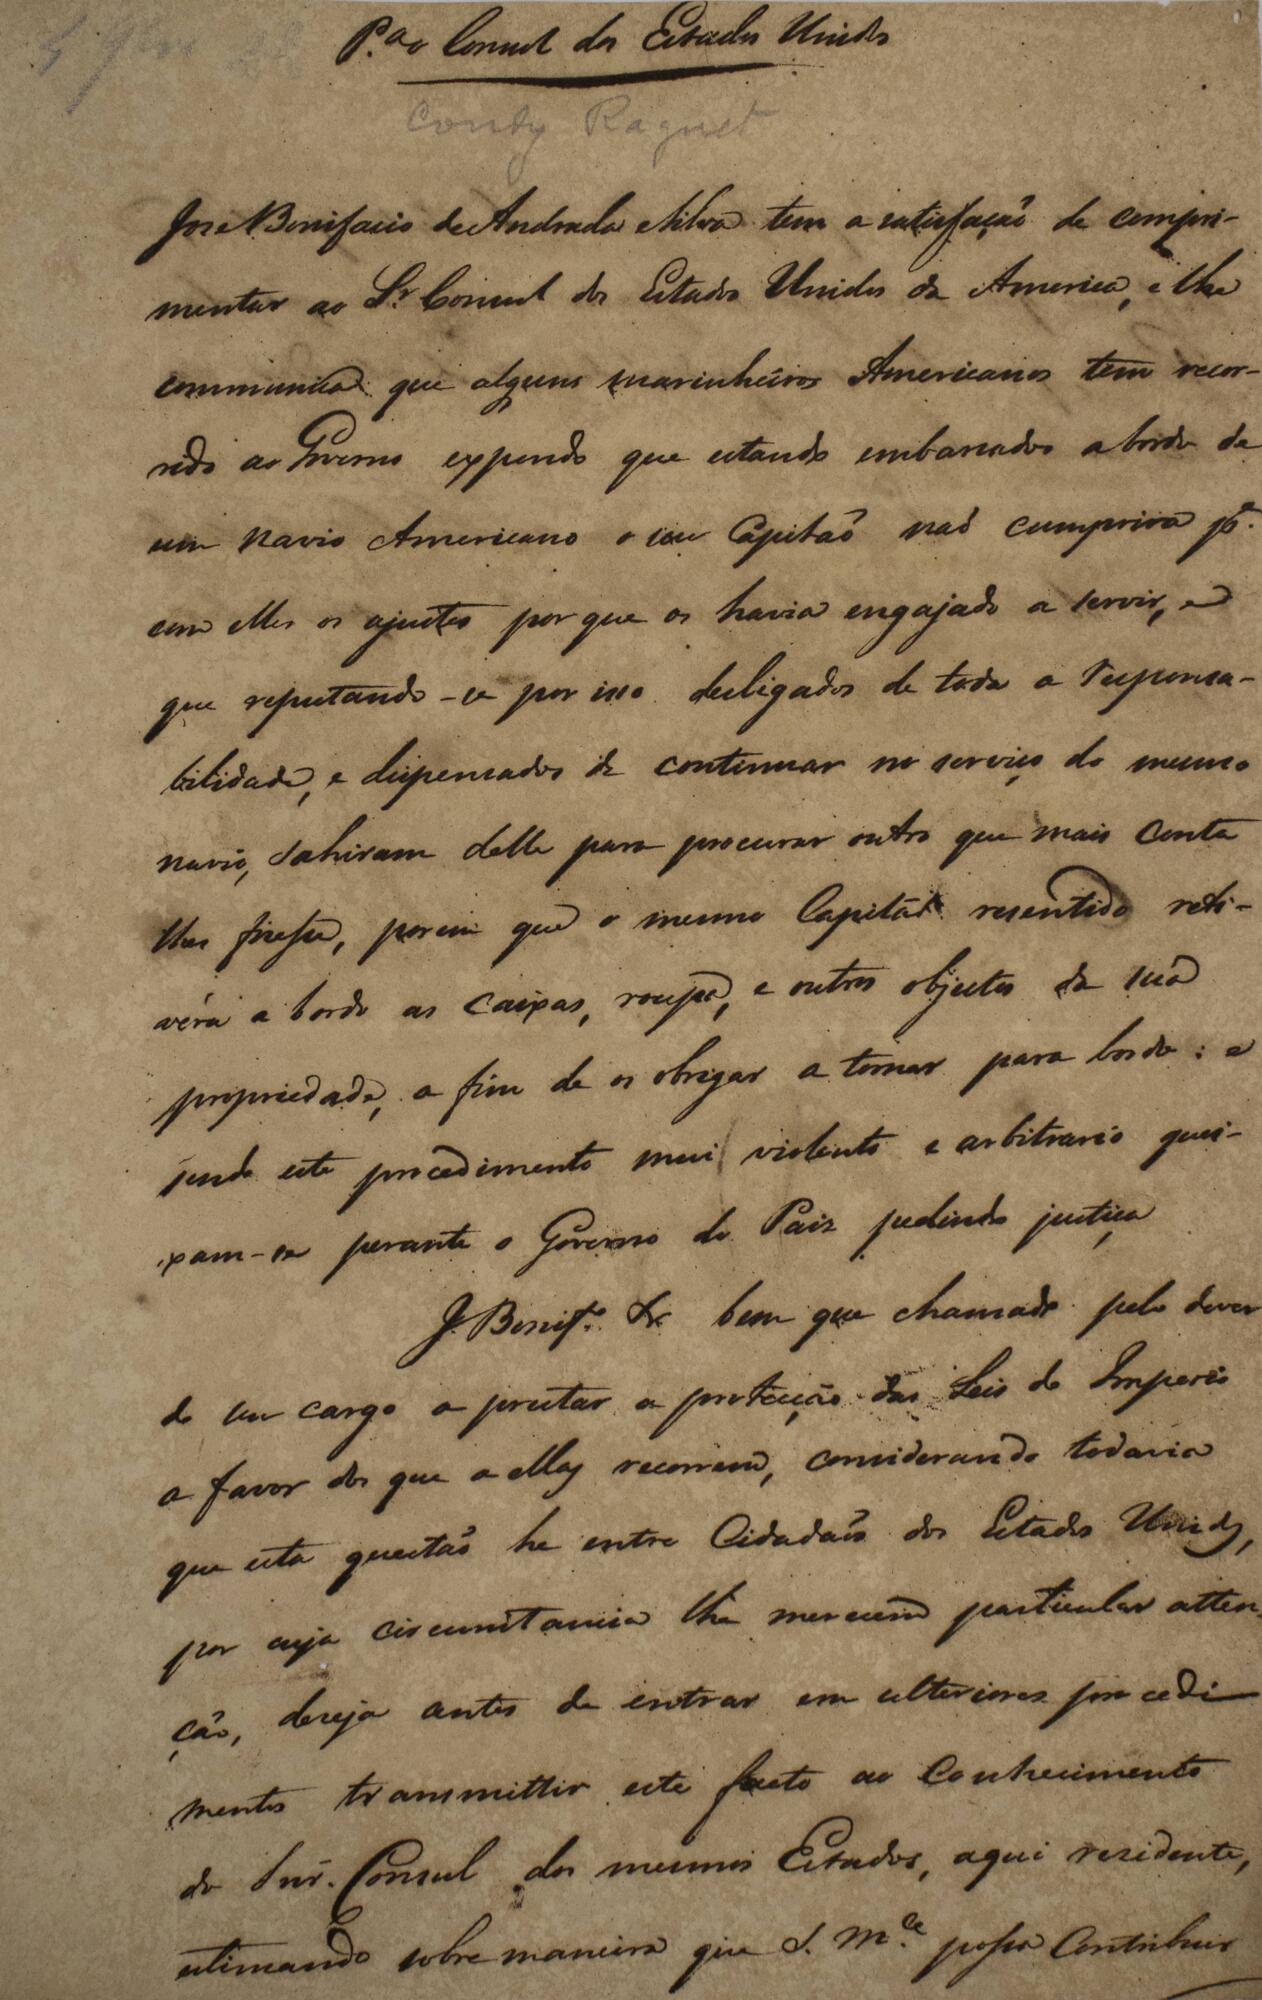 P.ª o Consul dos Estados Unidos
Condy Raguet
Jose Bonifacio de Andrada e Silva tem a satisfação de compri-
mentar ao Sr. Consul dos Estados Unidos da America, e lhe
communica que alguns marinheiros Americanos tem recor-
rido ao Governo expondo que estando embarcados a bordo de
um navio Americano o seu Capitaõ naõ cumprira pª.
com elles os ajustes por que os havia engajado a servir, e
que reputando-se por isso desligados de toda a responsa-
bilidade, e dispensados de continuar no serviço do mesmo
navio, sahiram delle para procurar outro que mais conta
lhes fizesse, porem que o mesmo Capitão resentido reti-
vera a bordo as caixas, roupa, e outros objectos da sua
propriedade, a fim de os obrigar a tornar para bordo: e
sendo este procedimento mui violento e arbitrario quei-
xam-se perante o Governo do Paiz pedindo justiça
J. Bonif.º &c bem que chamado pelo dever
do seu cargo a prestar a protecção das Leis do Imperio
a favor dos que a ellas recorrem, considerando todavia
que esta questaõ he entre Cidadaõs dos Estados Unidos,
por cuja circumstancia lhe merecem particular atten-
ção, deseja antes de entrar em ulteriores procedi
mentos transmittir este facto ao conhecimento
do Snr. Consul dos mesmos Estados, aqui residente,
estimando sobre maneira que S. M.ce possa Contribuir